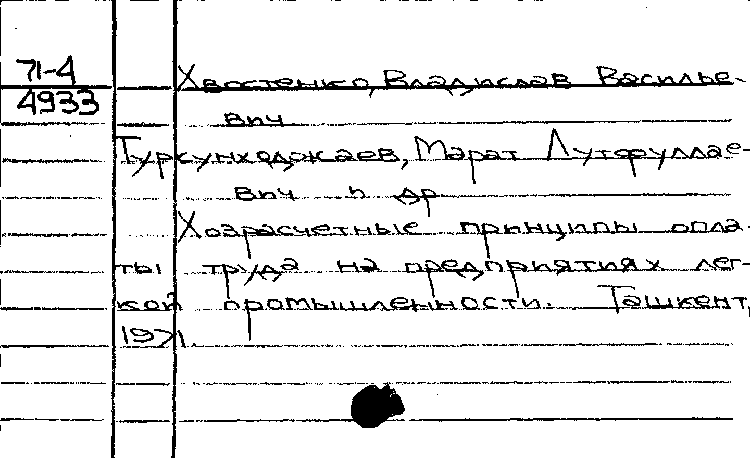 71-4
4933
Хвостенко, Владислав Василье-
вич
Турсунходжаев, Марат Лутфуллае-
вич и др
Хозрасчетные принципы опла-
ты труда на предприятиях лег-
кой промышленности. Ташкент,
1971.